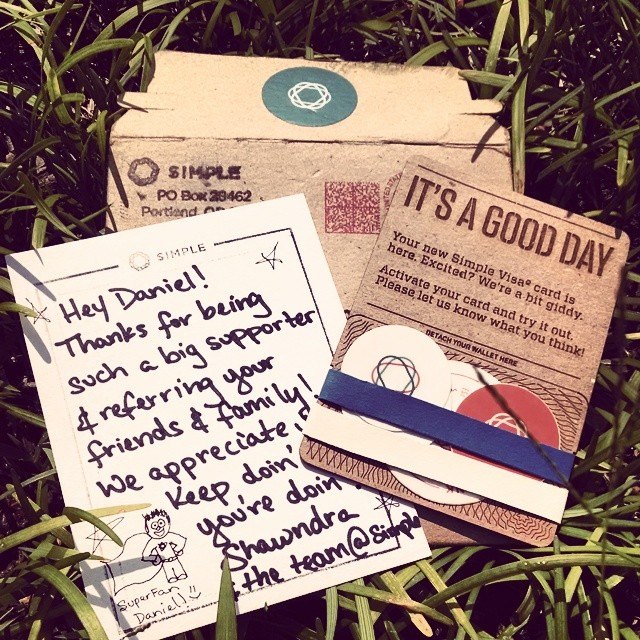 SIMPLE
PO Box 29462
Portland
SIMPLE
Hey Daniel!
Thanks for being
such a big supporter
& referring your
friends & family!
We appreciate
Keep doin'
you're doin
Shawndra
the team@simple
Superfan
Daniel!
IT'S A GOOD DAY
Your new Simple Visa® card is
here. Excited? We're a bit giddy.
Activate your card and try it out.
Please let us know what you think!
DETACH YOUR WALLET HERE